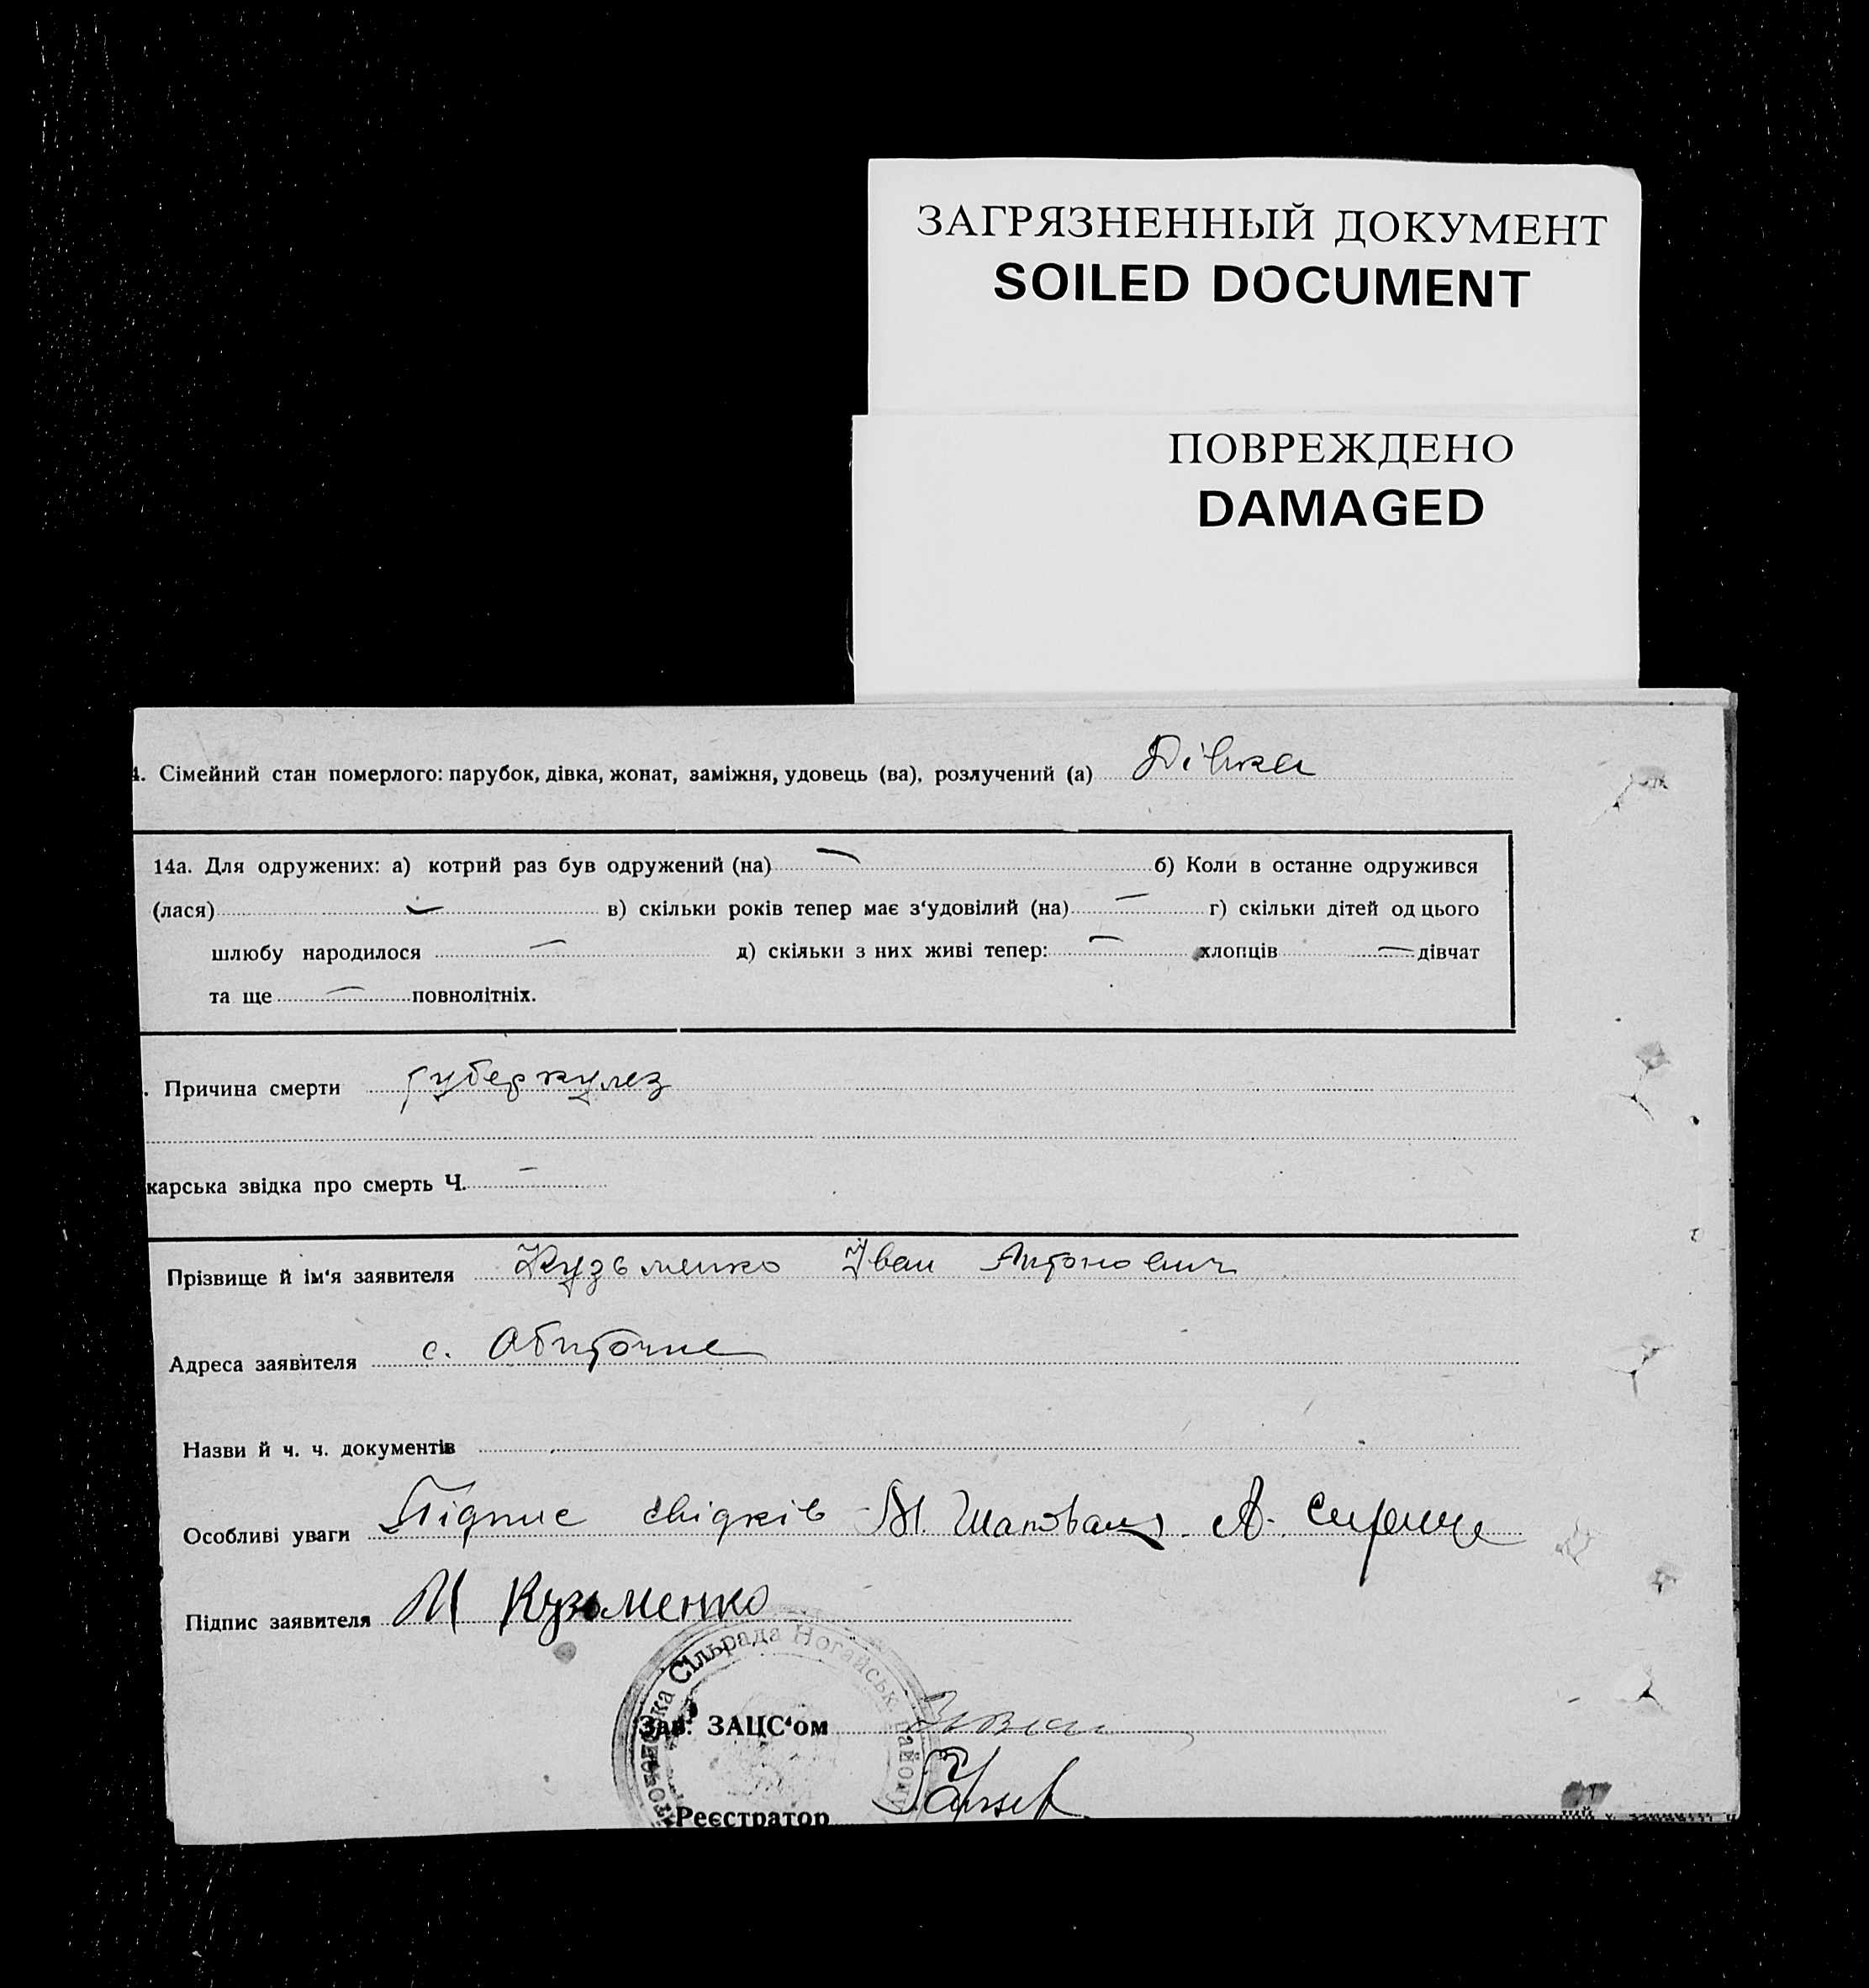 ЗАГРЯЗНЕННЫЙ ДОКУМЕНТ
SOILED DOCUMENT
ПОВРЕЖДЕНО
DAMAGED
4. Сімейний стан померлого: парубок, дівка, жонат, заміжня, удовець (ва), розлучений (а) Дівка
14а. Для одружених: а) котрий раз був одружений (на) — б) Коли в останне одружився
(лася) — в) скільки років тепер має з‘удовілий (на) — г) скільки дітей од цього
шлюбу народилося — д) скільки з них живі тепер: — хлопців — дівчат
та ще — повнолітніх.
. Причина смерти туберкулез
карська звідка про смерть Ч. —
Прізвище й ім‘я заявителя Кузьменко Іван Антонович
Адреса заявителя с. Обиточне
Назви й ч. ч. документів
Особливі уваги Підпис свідків М. Шаповал А.
Підпис заявителя И Кузьменко
ка Сільрада Ногайськ. Району
Зав. ЗАЦС‘ом
Реєстратор